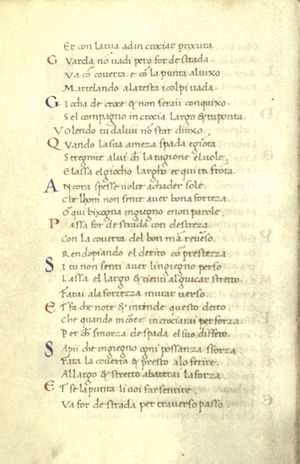 Et con la tua ad in crociar procura
Guarda nō uadi pero for de strada
Va cō couerta e cō la punta al uixo
Martelando a la testa i colpi uada
Gi cha de croxe & non serai conquixo
Sel compagno in crocia largo & tu ponta
Volendo tu da lui nō star diuixo
Quando la sua a meza spada e gionta
Stregnite a lui ch la ragione el uole
E lassa el giocho largho et qui ta frota
Ancora spesse uolte achader sole
Che lhom non sente auer bona forteza
O qui bixogna ingiegno e non parole
Passa for de strada con destreza
Con la couerta del bon mā reuerso
Rendopiando el derito cō presteza
Si tu non senti auer l ingiegno perso
Lassa el largo & tienti al giucar stretto
Farai a la forteza mutar uerso
E Tfa che note & intende questo detto
Che quando incōtē incrociarai per forza
Per dh smorza de spada el suo diffeto
Sapi che ingiegno cgni possanza sforza
Fata la couerta & presto a lo ferire
Al largo & stretto abaterai la forza
E T se la punta li uoi far sentire
Va for de strada per trauerso passo